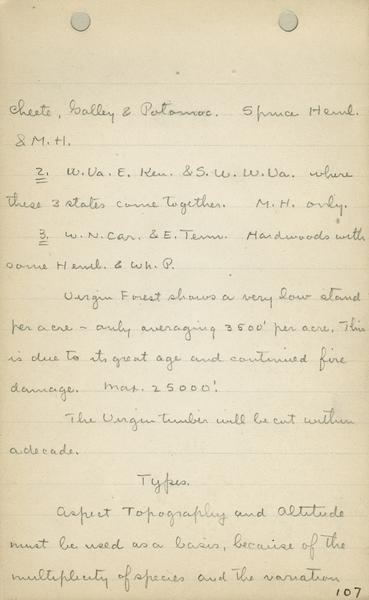 Cheete, Galley & Potomac. Spruce Heml.
& M. H.
2. W. Va. E. Ken. & S. W. W. Va. where
these 3 states come together. M. H. only.
3. W. N. Car. & E. Tenn. Hardwoods with
some Heml. & Wh. P.
Virgin Forest shows a very low stand
per acre - only averaging 3500' per acre. This
is due to its great age and continued fire
damage. Max. 25000'.
The Virgin timber will be cut within
a decade.
Types.
Aspect Topography and Altitude
must be used as a basis, because of the
multiplicity of species and the variation
107